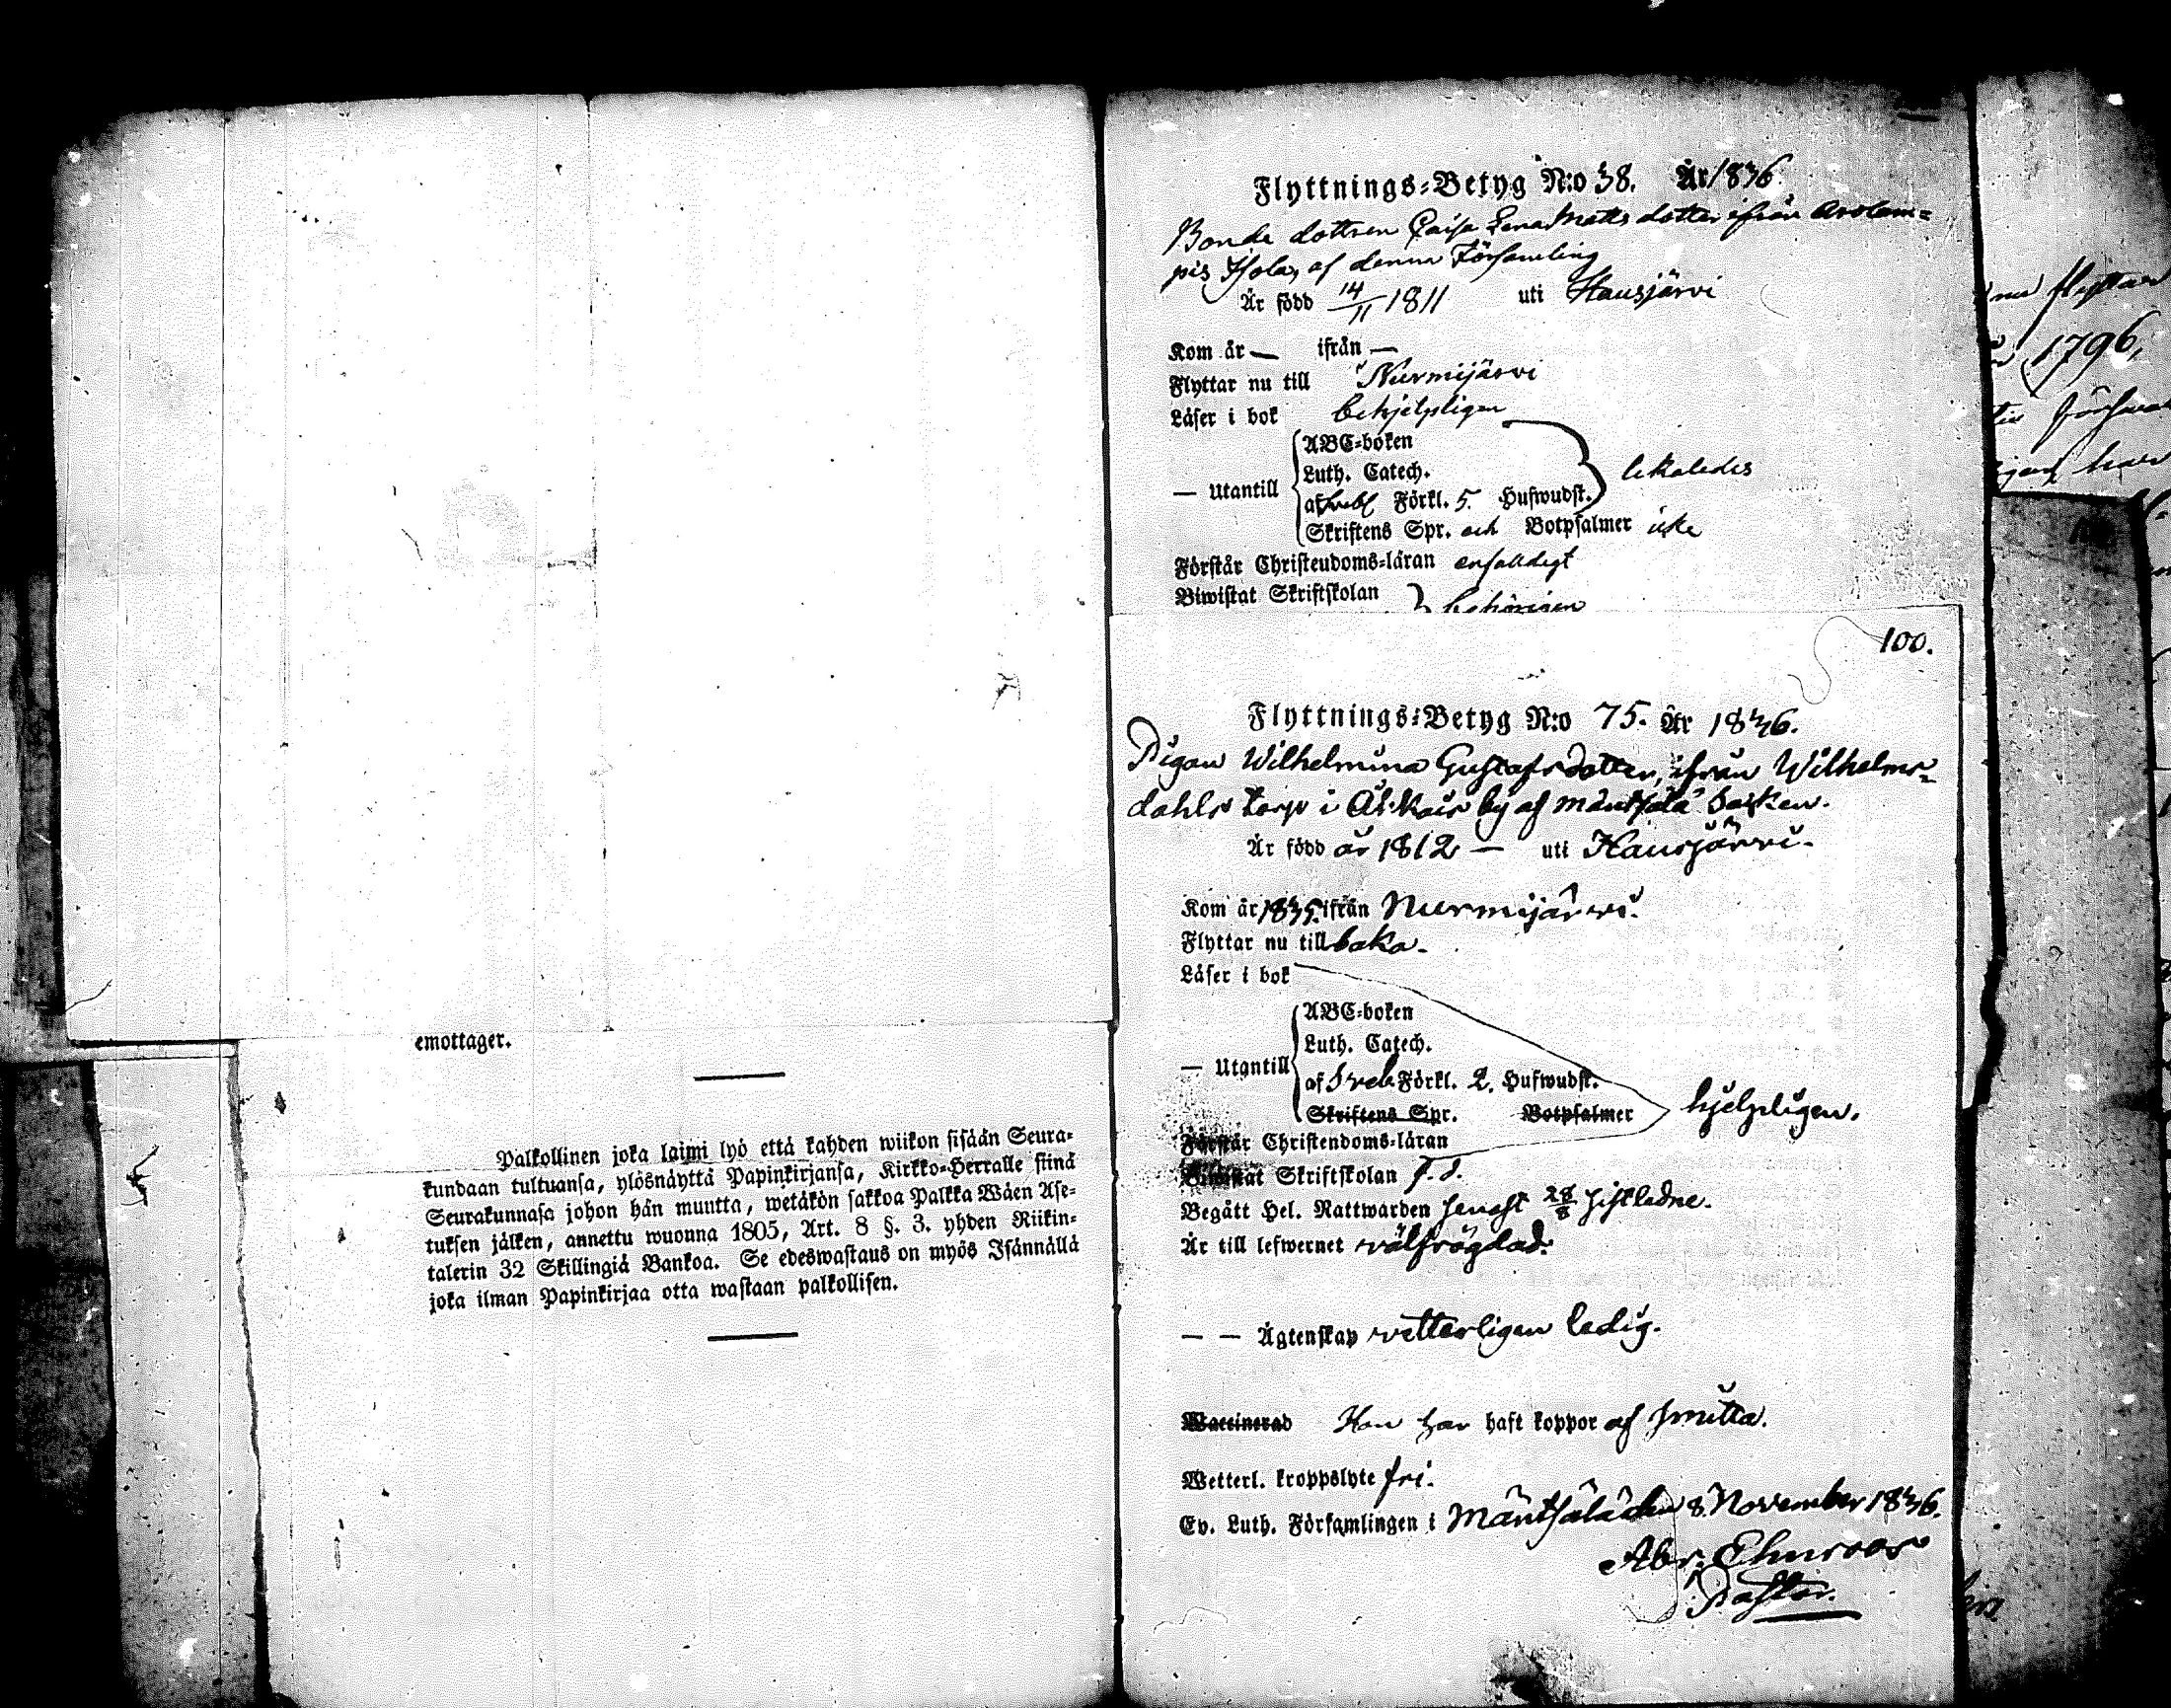 emottager.
Palkollinen joka laimi lyö että kahden wiikon sisään Seura=
kundaan tultuansa, ylösnäyttä Papinkirjansa, Kirkko=Herralle siinä
Seurakunnasa johon hän muutta, wetäkön sakkoa Palkka Wäen Ase=
tuksen jälken, annettu wuonna 1805, Art. 8 §. 3. yhden Riikin=
talerin 32 Skillingiä Bankoa. Se edeswastaus on myös Isännällä
joka ilman Papinkirjaa otta wastaan palkollisen.
Flyttnings=Betyg N:o 38. År 1836
Bonde dottren Caisa Lena Matts dotter ifrån Arolam=
pis Isola, af denna Församling
Är född 14/11 1811 uti Hausjärvi
Kom år — ifrån —
Flyttar nu till Nurmijärvi
Läser i bok behjelpligen
— Utantill
ABC=boken
Luth. Catech.
af Förkl. 5. Hufwudst.
likaledes
Skriftens Spr. och Botpsalmer icke
Förstår Christendoms=läran enfaldigt
Biwistat Skriftskolan
behörigen
100.
Flyttnings=Betyg N:o 75. År 1836.
Pigan Wilhelmina Gustafsdotter, ifrån Wilhelms=
dahls torp i by af Mäntsälä Socken.
Är född år 1812 — uti Hausjärvi.
Kom år 1835. ifrån Nurmijärvi.
Flyttar nu till baka.
Läser i bok
— Utantill
ABC=boken
Luth. Catech.
af Sveb. Förkl. 2. Hufwudst.
Skriftens Spr. Botpsalmer
hjelpligen.
Förstår Christendoms=läran
Biwistat Skriftskolan
Begått Hel. Nattwarden senast 28/8 sistledne.
Är till lefwernet välfrägdad.
— — Ägtenskap vetterligen ledig.
Waccinerad Hon har haft koppor af smitta.
Wetterl. kroppslyte fri.
Ev. Luth. Församlingen i Mäntsälä den 8. November 1836.
Abr. Ehnroos
Pastor.
nu flyttar
1796,
har